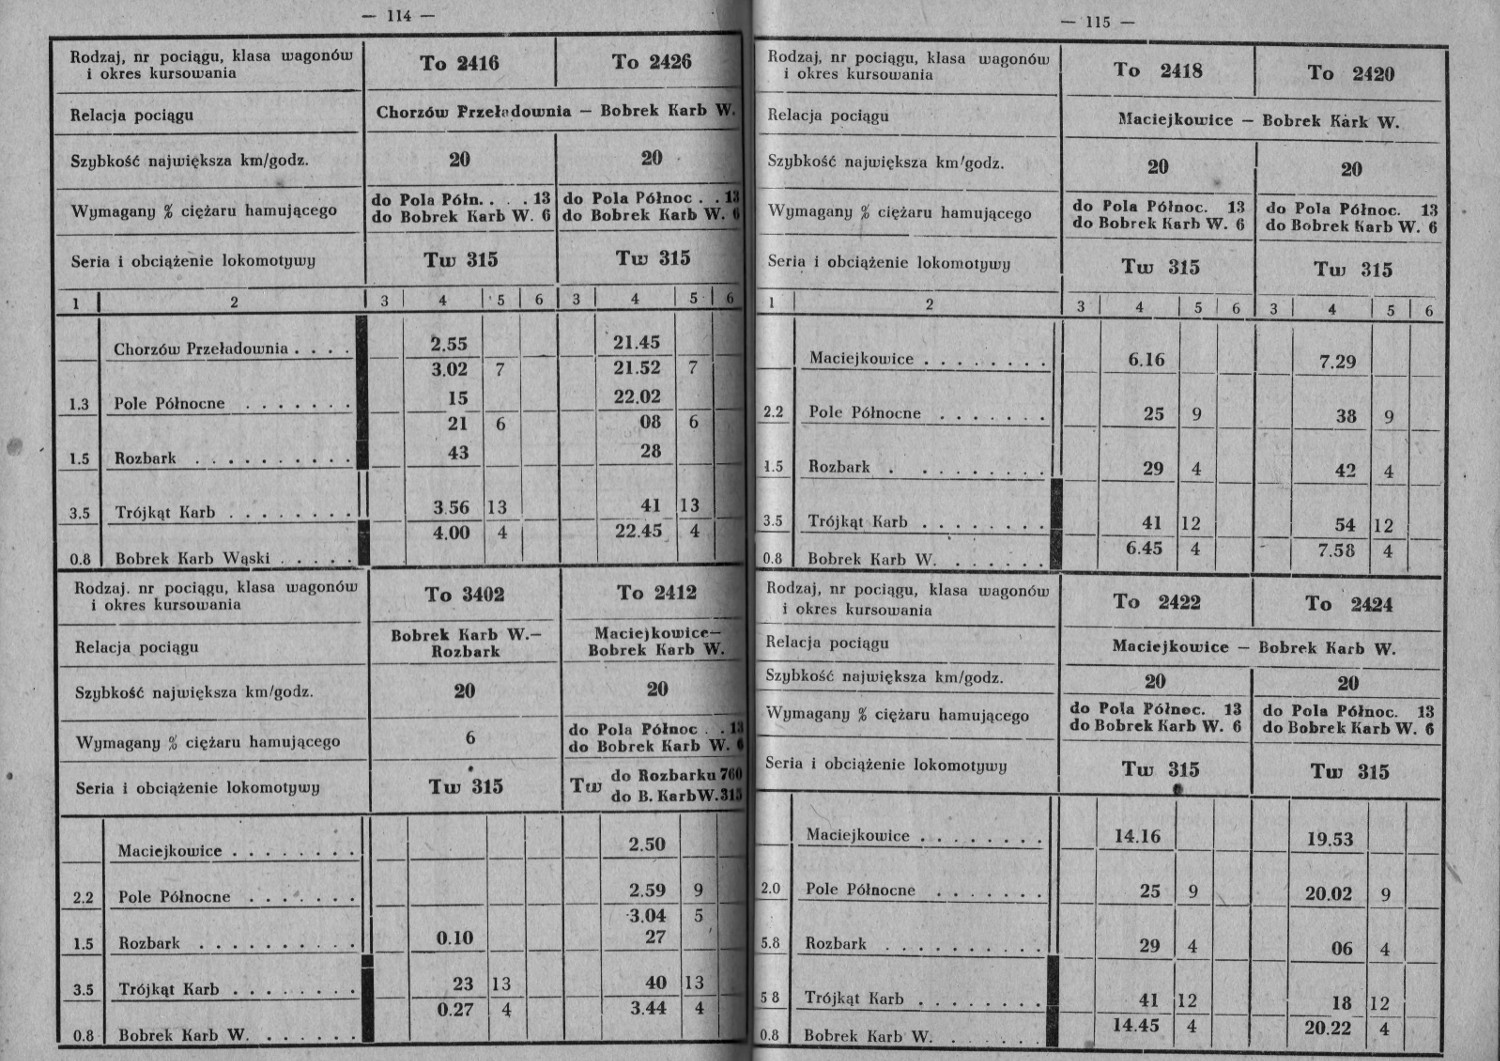 — 114 —
Rodzaj, nr pociągu, klasa wagonów i okres kursowania To 2416 To 2426
Relacja pociągu Chorzów Przeładownia — Bobrek Karb W.
Szybkość największa km/godz. 20 20
Wymagany % ciężaru hamującego do Pola Półn. . . . 13 do Pola Północ . . 13
do Bobrek Karb W. 6 do Bobrek Karb W. 6
Seria i obciążenie lokomotywy Tw 315 Tw 315
1 2 3 4 5 6 3 4 5 6
Chorzów Przeładownia . . . . 2.55 21.45
3.02 7 21.52 7
1.3 Pole Północne . . . . . . . 15 22.02
21 6 08 6
1.5 Rozbark . . . . . . . . . . 43 28
3.5 Trójkąt Karb . . . . . . . . 3.56 13 41 13
4.00 4 22.45 4
0.8 Bobrek Karb Wąski . . . . .
Rodzaj. nr pociągu, klasa wagonów i okres kursowania To 3402 To 2412
Relacja pociągu Bobrek Karb W.— Rozbark Maciejkowice— Bobrek Karb W.
Szybkość największa km/godz. 20 20
Wymagany % ciężaru hamującego 6 do Pola Północ . . 13
do Bobrek Karb W. 6
Seria i obciążenie lokomotywy Tw 315 Tw do Rozbarku 760
do B. Karb W. 315
Maciejkowice . . . . . . . . 2.50
2.2 Pole Północne . . . . . . . 2.59 9
3.04 5
1.5 Rozbark . . . . . . . . . . 0.10 27
3.5 Trójkąt Karb . . . . . . . . 23 13 40 13
0.27 4 3.44 4
0.8 Bobrek Karb W. . . . . . .
— 115 —
Rodzaj, nr pociągu, klasa wagonów i okres kursowania To 2418 To 2420
Relacja pociągu Maciejkowice — Bobrek Kark W.
Szybkość największa km/godz. 20 20
Wymagany % ciężaru hamującego do Pola Północ. 13 do Pola Północ. 13
do Bobrek Karb W. 6 do Bobrek Karb W. 6
Seria i obciążenie lokomotywy Tw 315 Tw 315
1 2 3 4 5 6 3 4 5 6
Maciejkowice . . . . . . . . 6.16 7.29
2.2 Pole Północne . . . . . . . 25 9 38 9
1.5 Rozbark . . . . . . . . . 29 4 42 4
3.5 Trójkąt Karb . . . . . . . . 41 12 54 12
6.45 4 7.58 4
0.8 Bobrek Karb W. . . . . . .
Rodzaj, nr pociągu, klasa wagonów i okres kursowania To 2422 To 2424
Relacja pociągu Maciejkowice — Bobrek Karb W.
Szybkość największa km/godz. 20 20
Wymagany % ciężaru hamującego do Pola Północ. 13 do Pola Północ. 13
do Bobrek Karb W. 6 do Bobrek Karb W. 6
Seria i obciążenie lokomotywy Tw 315 Tw 315
Maciejkowice . . . . . . . . 14.16 19.53
2.0 Pole Północne . . . . . . . 25 9 20.02 9
5.8 Rozbark . . . . . . . . . . 29 4 06 4
5 8 Trójkąt Karb . . . . . . . . 41 12 18 12
14.45 4 20.22 4
0.8 Bobrek Karb W. . . . . . .